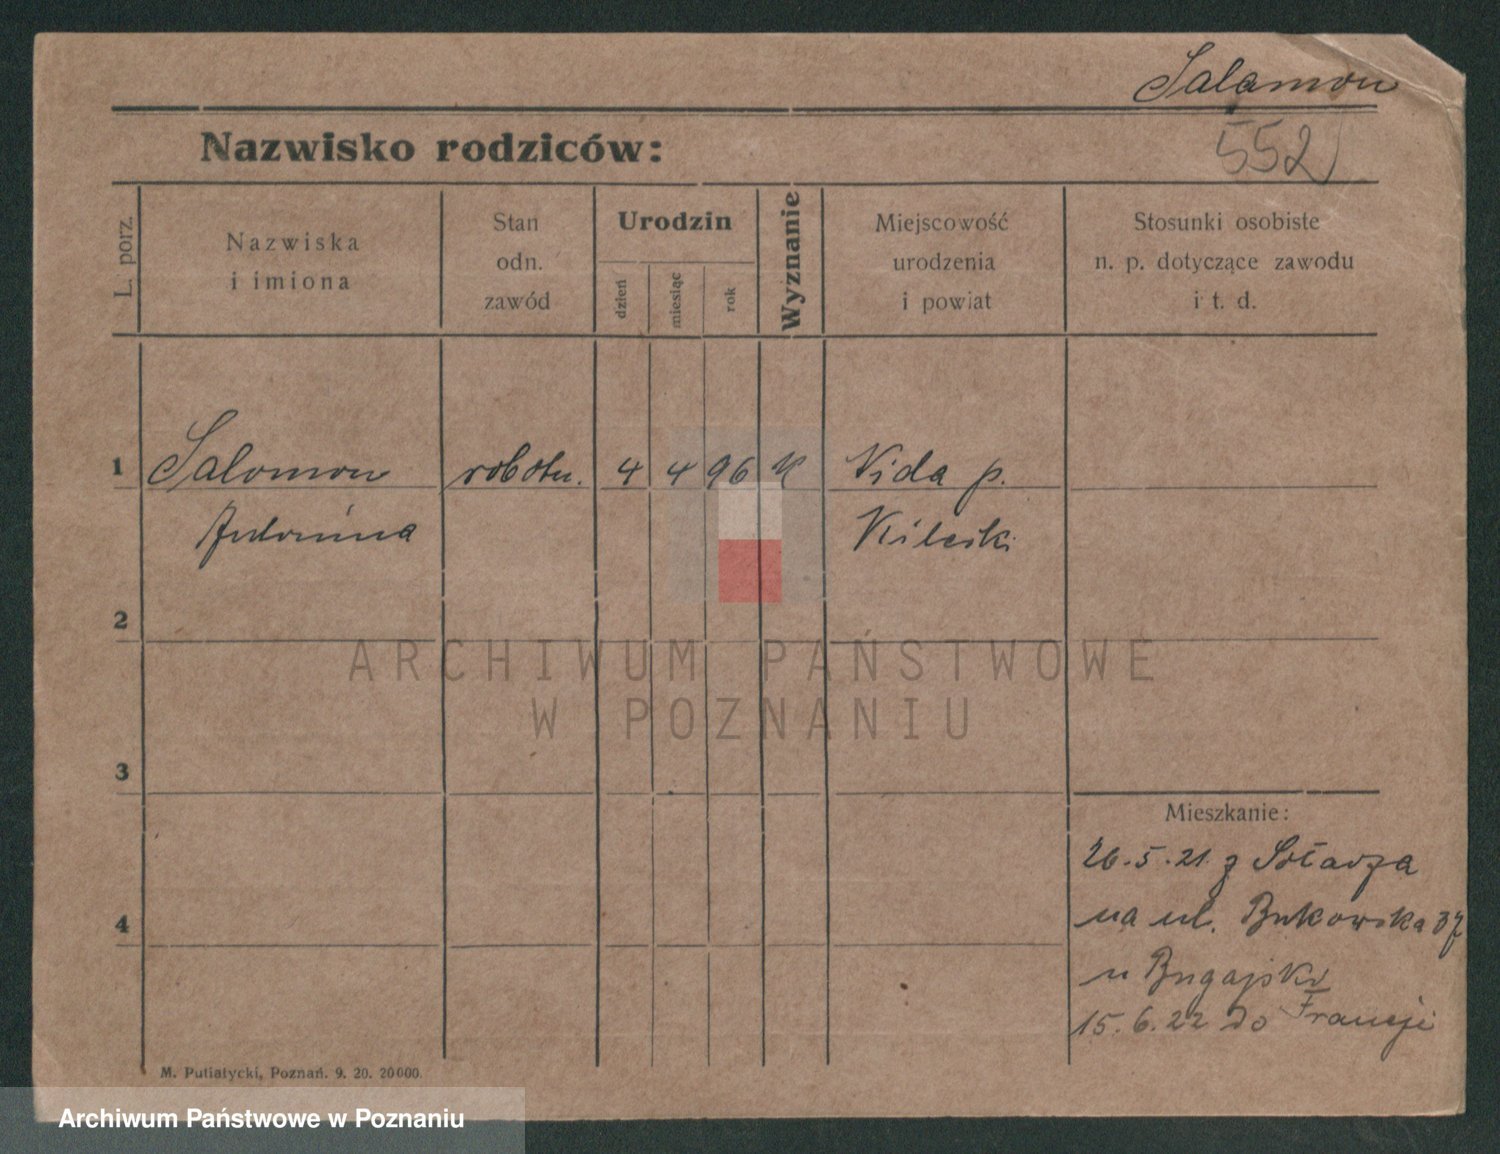 Salamon
552
Nazwisko rodziców:
L. porz.
Nazwiska
i imiona
Stan
odn.
zawód
Urodzin
dzień
miesiąc
rok
Wyznanie
Miejscowość
urodzenia
i powiat
Stosunki osobiste
n. p. dotyczące zawodu
i t. d.
1 Salomon robotn. 4 4 96 K Nida p.
Antonina
2
3
4
ARCHIWUM PAŃSTWOWE
W POZNANIU
Mieszkanie:
26.5.21. z Sołacza
na ul. Bukowska 37
u Bugajski
15.6.22 do Francji
M. Putiatycki, Poznań. 9. 20. 20000.
Archiwum Państwowe w Poznaniu